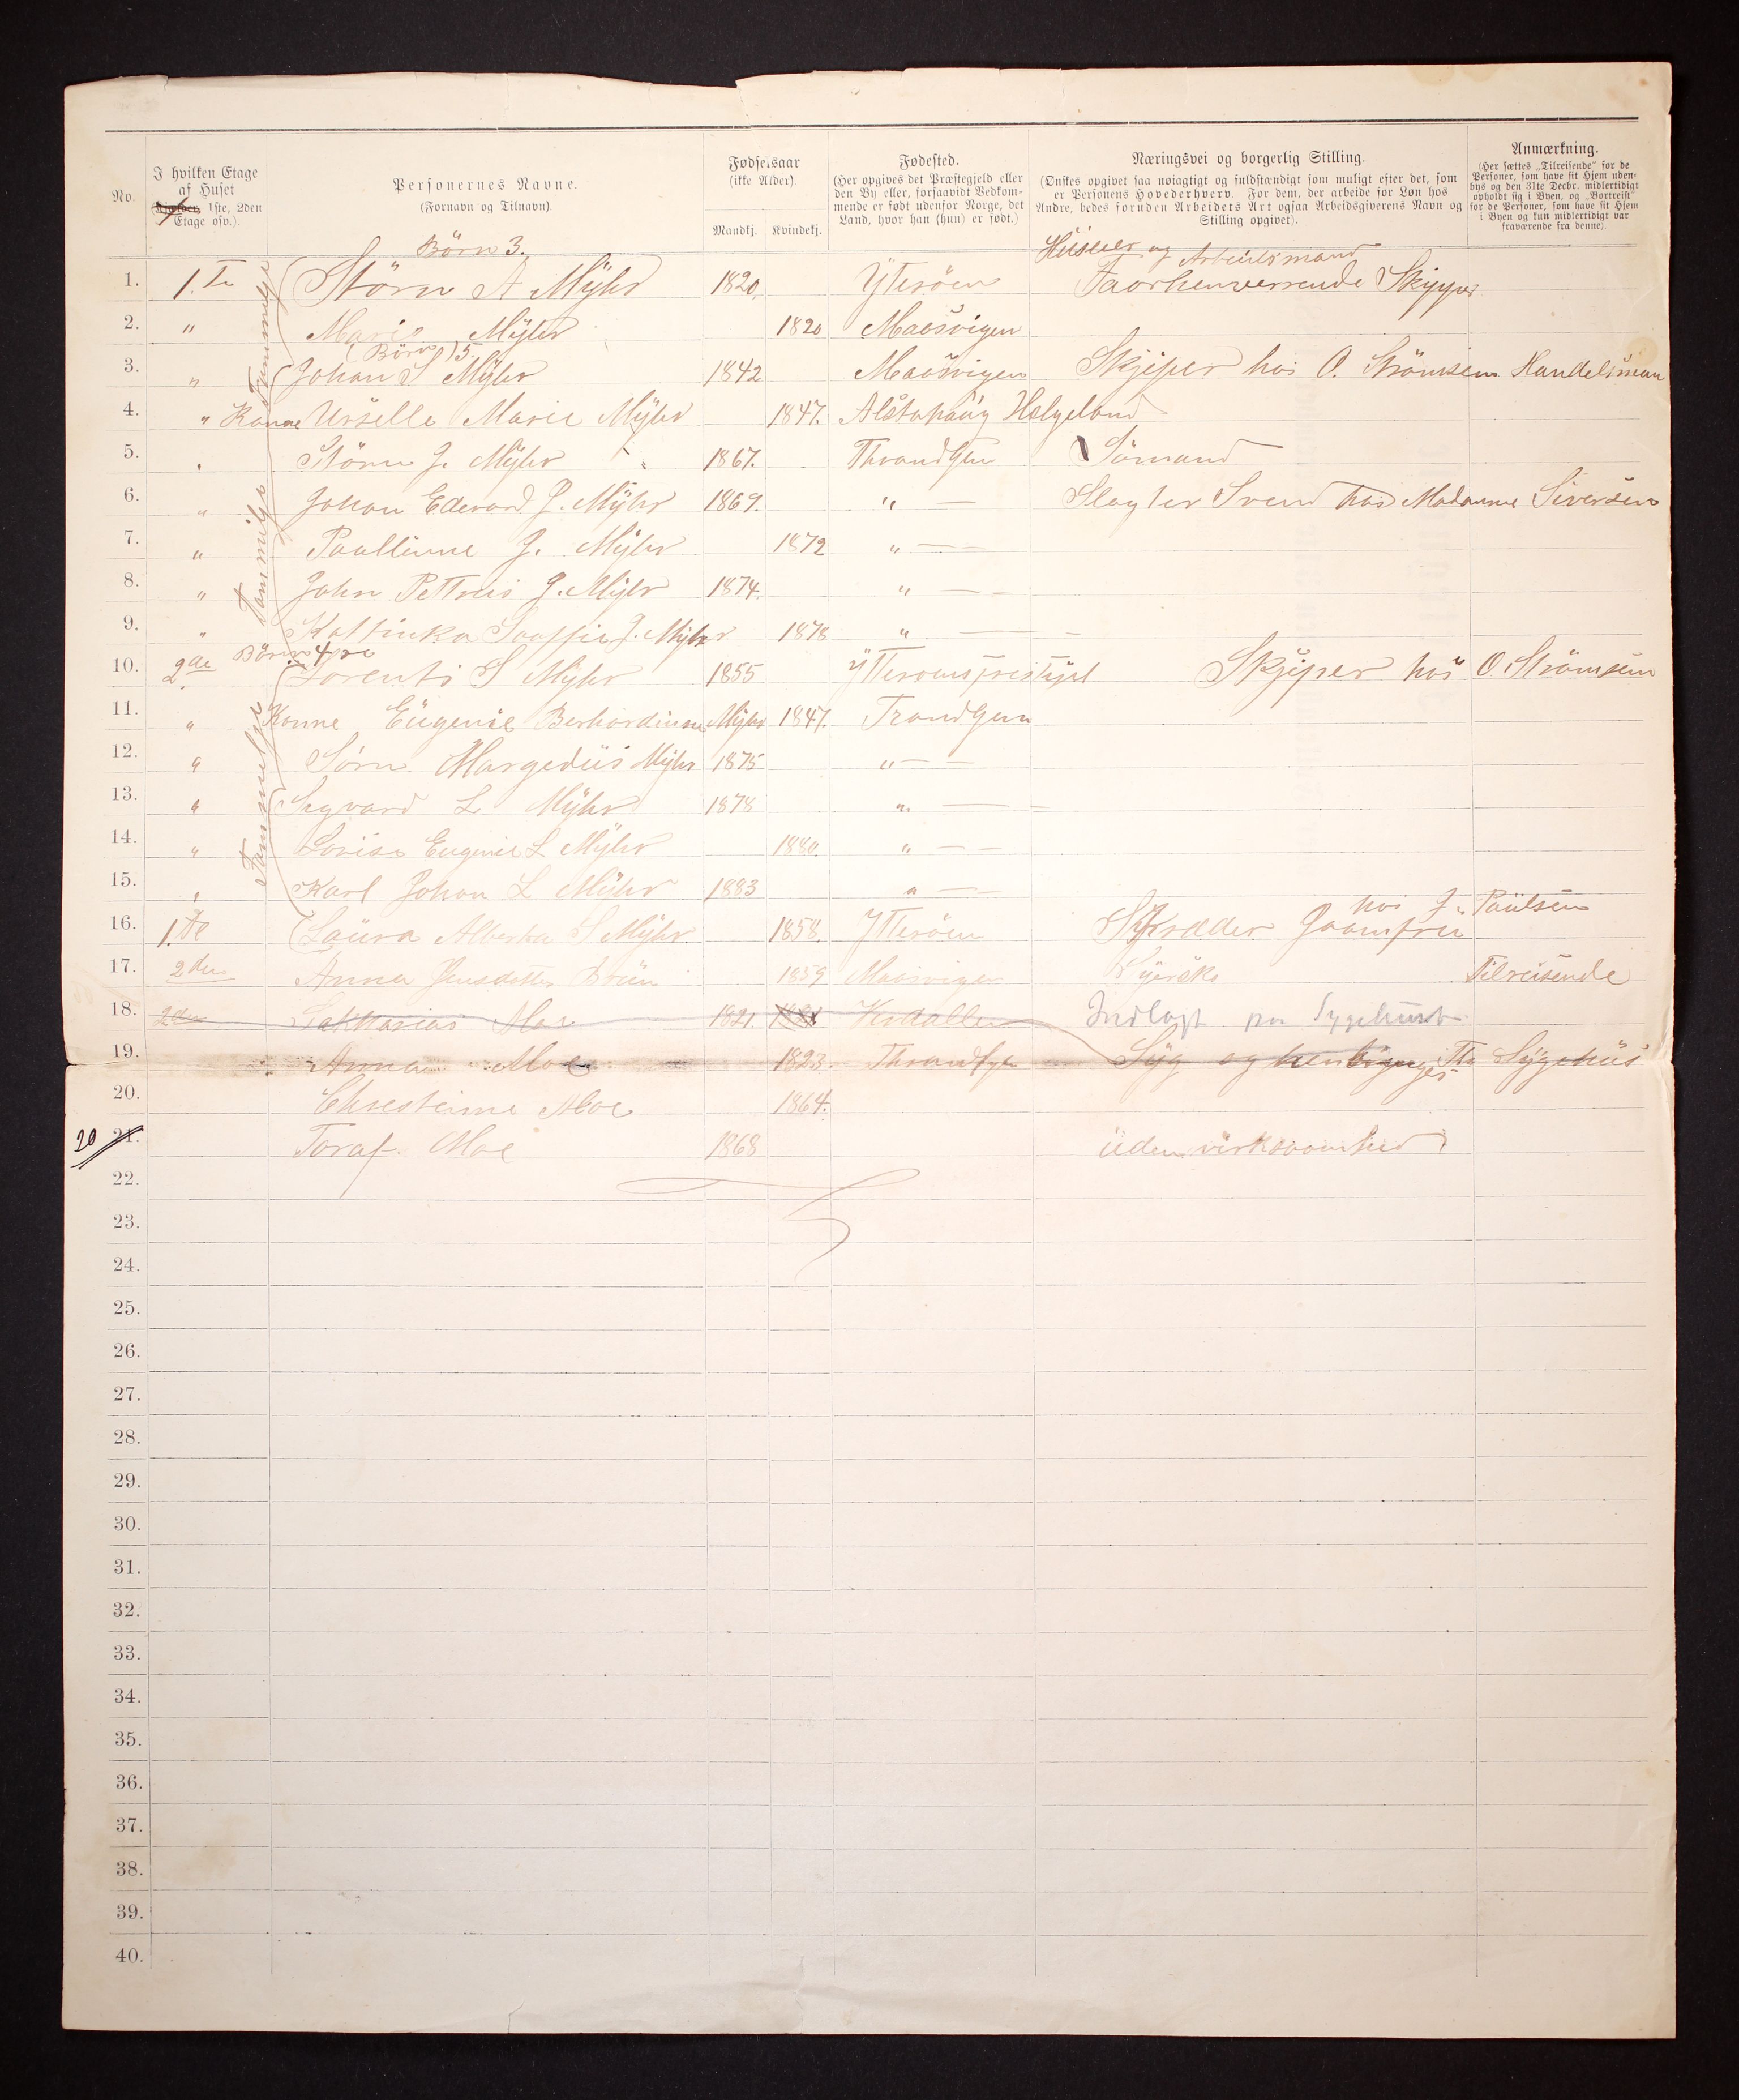 No.
I hvilken Etage af Huset (Kjælder, 1ste, 2den Etage osv.).
Personernes Navne. (Fornavn og Tilnavn).
Fødselsaar (ikke Alder). Mandkj. Kvindekj.
Fødested. (Her opgives det Præstegjeld eller den By eller, forsaavidt Vedkommende er født udenfor Norge, det Land, hvor han (hun) er født.)
Næringsvei og borgerlig Stilling. (Ønskes opgivet saa nøiagtigt og fuldstændigt som muligt efter det, som er Personens Hovederhverv. For dem, der arbeide for Løn hos Andre, bedes foruden Arbeidets Art ogsaa Arbeidsgiverens Navn og Stilling opgivet).
Anmærkning. (Her sættes „Tilreisende" for de Personer, som have sit Hjem udenbys og den 31te Decbr. midlertidigt opholdt sig i Byen, og „Bortreist" for de Personer, som have sit Hjem i Byen og kun midlertidigt var fraværende fra denne).
Börn 3. Arbeidsmand
1. 1.Te Störn A Mÿhr 1820 Ytterøen Faorhenverrende Skipper
2. " Marie Mÿhr 1820 Maosvigen
(Börn) 5.
3. " Johan S Mÿhr 1842 Maosvigen Skjiper hos O. Strömsem Handelsman
4. " Konne Urselle Marie Mÿhr 1847. Alstahaug Helgeland
5. " Störn J. Mÿhr 1867. Throndhjem Sömand
6. " Johan Edevard J. Mÿhr 1869. " — Slagter Svend hos Madamme Siversen
7. " Paulinne J. Mÿhr 1872 " —
8. " John Pettreus J. Mÿhr 1874. " —
9. " Kattinka Soaffie J. Mÿhr 1878 " —
Börn 4re
10. 2de Lorents S Mÿhr 1855 Skjiper hos O. Strömsem
11. " Konne Eügenie Berhardinne Mÿhr 1847. Trondhjem
12. " Sörn Margedüs Mÿhr 1875 " —
13. " Sigvard L Mÿhr 1878 " —
14. " Lovise Eugenie L Mÿhr 1880. " —
15. " Karl Johan L Mÿhr 1883 " —
hos J. Paülsen
16. 1.te Laüra Alberta S Mÿhr 1858. Ytterøen Skræder Joamfru
17. 2den Anna Jensdatter Brün 1859 Maosvigen Syerske Tilreisende
18. 2den Sakkarias Moe 1821 Verdallen Indlagt paa Sygehuset
19. Anna Moe 1823. Throndhjem Syg og henligger Tte Sygehüs
20. Chrestinne Moe 1864.
20 21. Toraf. Moe 1868 üden virksaamhed
22.
23.
24.
25.
26.
27.
28.
29.
30.
31.
32.
33.
34.
35.
36.
37.
38.
39.
40.
Fammilje
Fammilje
Fammilje